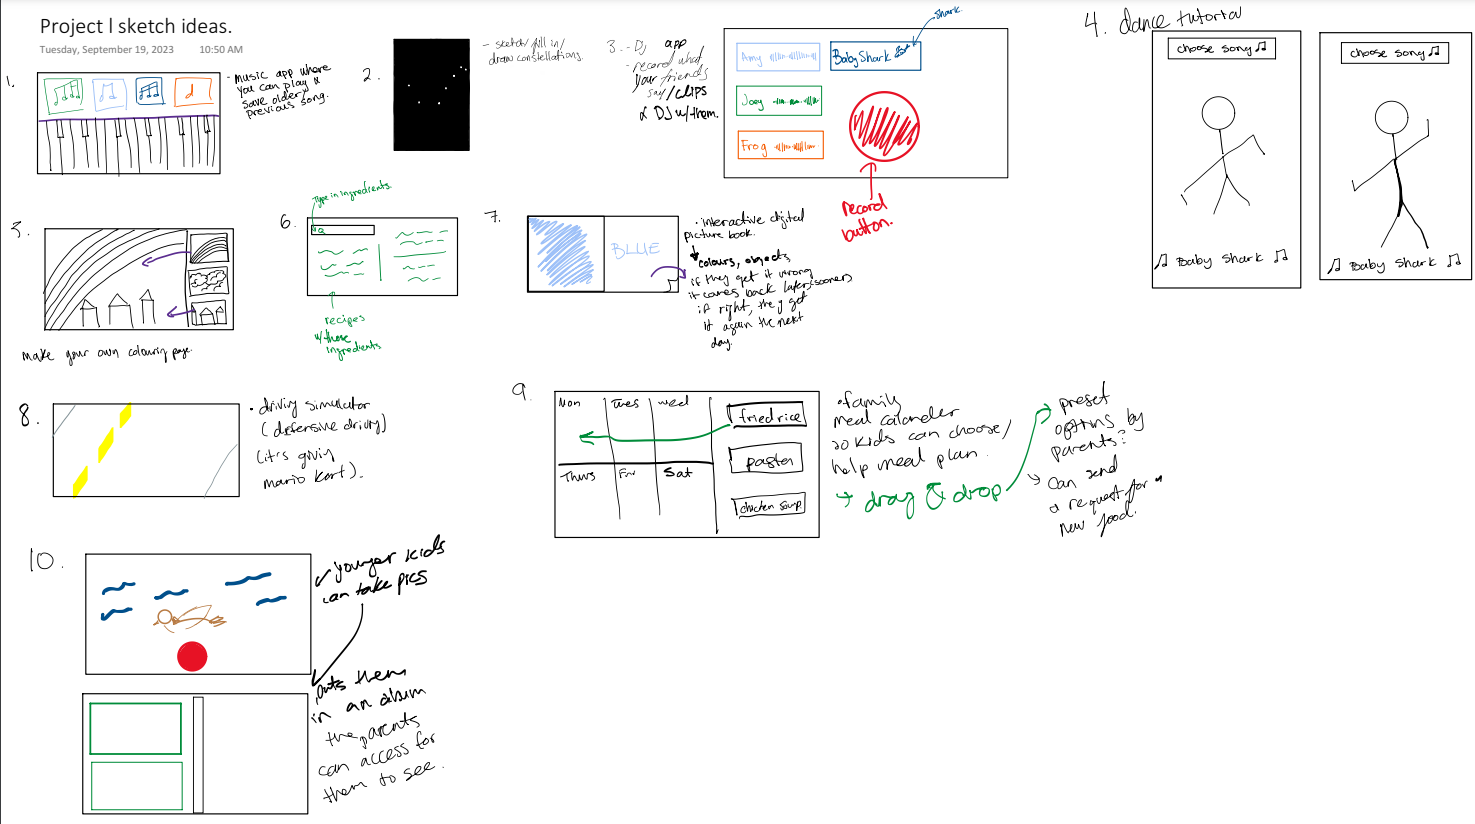 Project 1 sketch ideas.
Tuesday, September 19, 2023 10:50 AM
1.
- Music app where
you can play &
save older/
previous song.
2.
- sketch/fill in/
draw constellations.
3. - DJ app
- record what
your friends
say/clips
& DJ w/them.
Amy
Baby Shark
shark.
Joey
Frog
record
button.
4. dance tutorial
choose song
Baby Shark
choose song
Baby Shark
5.
make your own colouring page.
6.
Type in ingredients.
recipes
w/those
ingredients
7.
BLUE
• interactive digital
picture book.
colours, objects
if they get it wrong
it comes back later (sooner)
if right, they get
it again the next
day.
8.
• driving simulator
(defensive driving)
(it's giving
mario kart).
9.
Mon Tues wed
Thurs Fri Sat
fried rice
pasta
chicken soup
• family
meal calander
so kids can choose/
help meal plan.
drag & drop
preset
options by
parents?
Can send
a request for a
new food.
10.
younger kids
can take pics
puts them
in an album
the parents
can access for
them to see.